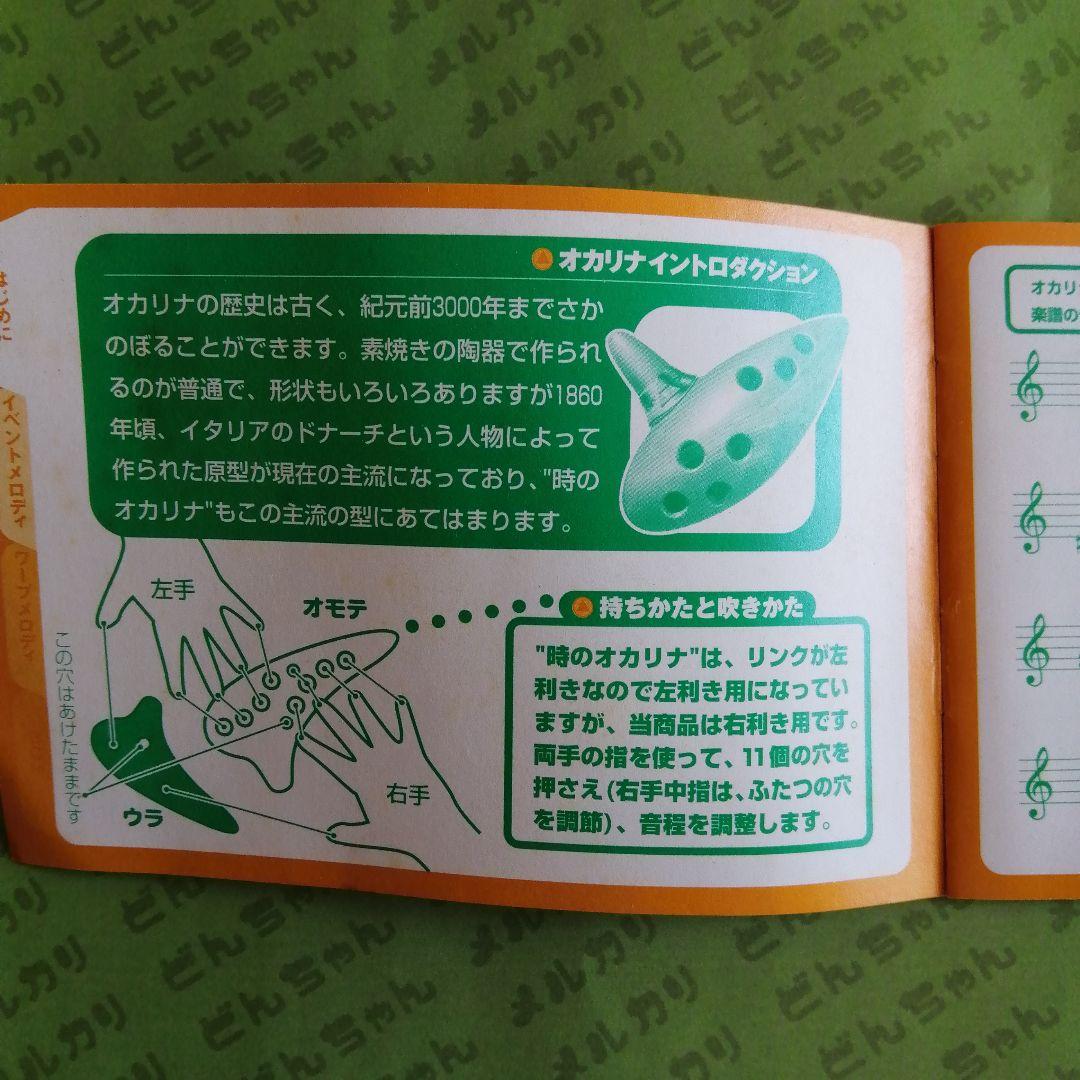 オカリナイントロダクション
オカリナの歴史は古く、紀元前3000年までさか
のぼることができます。素焼きの陶器で作られ
るのが普通で、形状もいろいろありますが1860
年頃、イタリアのドナーチという人物によって
作られた原型が現在の主流になっており、"時の
オカリナ"もこの主流の型にあてはまります。
はじめに
イベントメロディ
ワープメロディ
左手
オモテ
この穴はあけたままです
ウラ
右手
持ちかたと吹きかた
"時のオカリナ"は、リンクが左
利きなので左利き用になってい
ますが、当商品は右利き用です。
両手の指を使って、11個の穴を
押さえ(右手中指は、ふたつの穴
を調節)、音程を調整します。
オカリ
楽譜の
メルカリ
どんちゃん